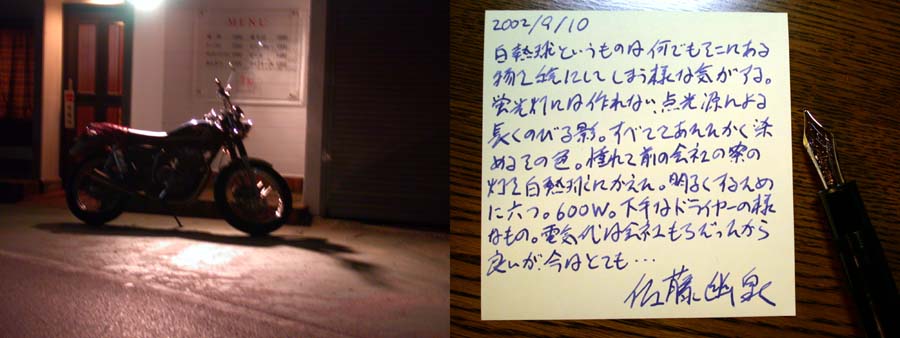 MENU
2002/9/10
白熱球というものは何でもそこにある
物を絵にしてしまう様な気がする。
蛍光灯には作れない、点光源による
長くのびる影。すべてあたたかく染
めるその色。憧れて前の会社の寮の
灯を白熱球にかえた。明るくするため
に六つ。600W。下手なドライヤーの様
なもの。電気代は会社もちだったから
良いが、今はとても…
佐藤幽泉